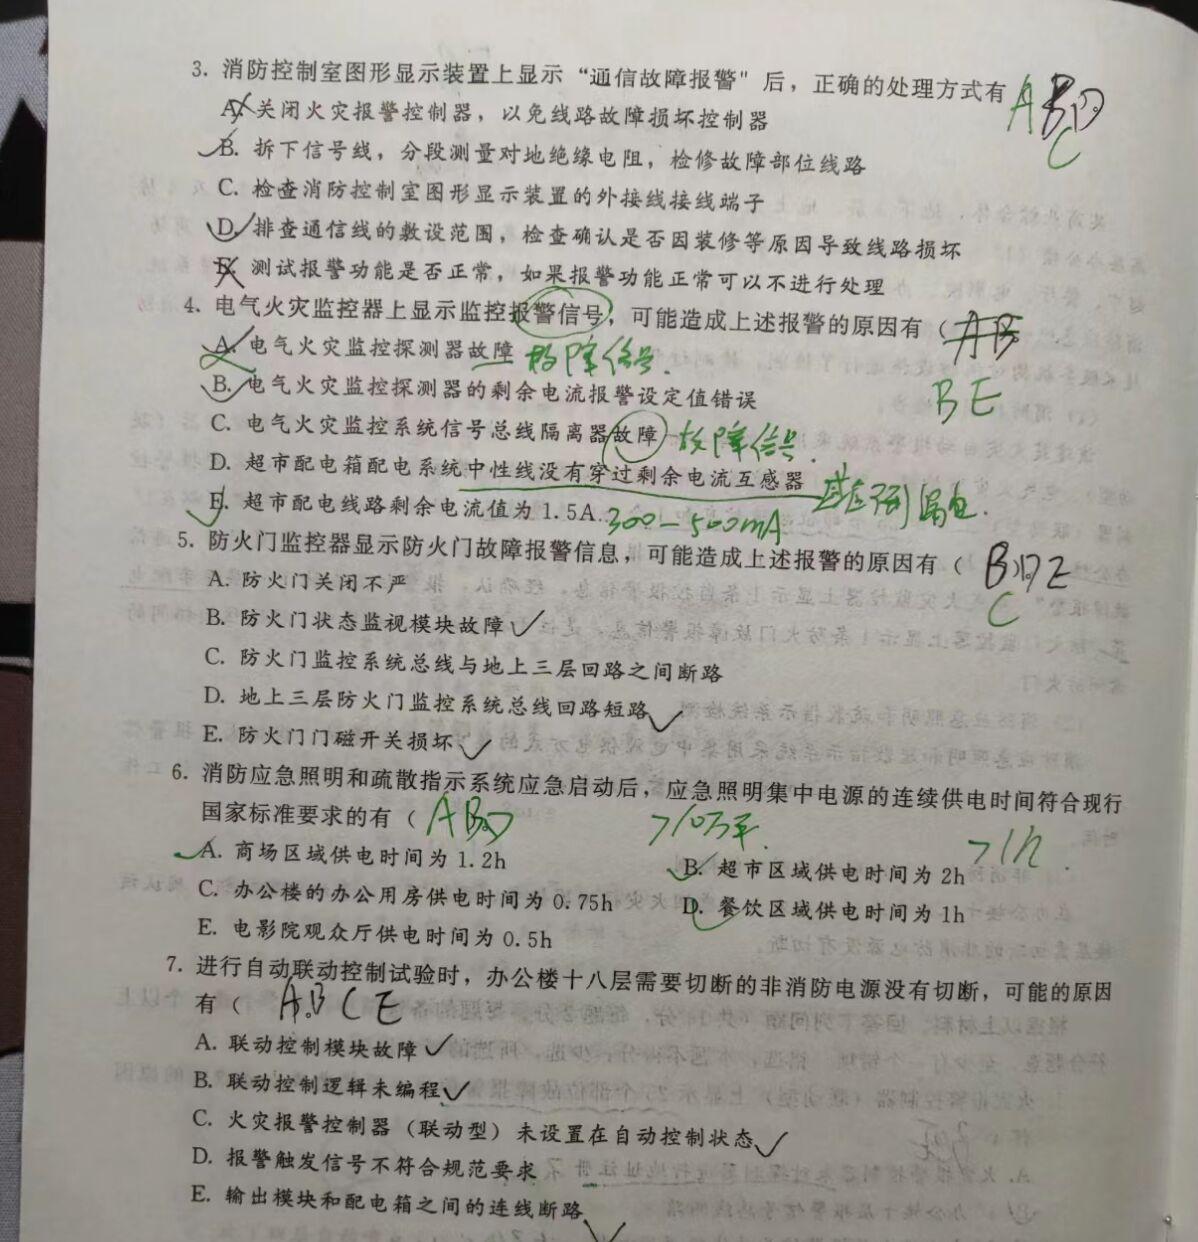 3. 消防控制室图形显示装置上显示“通信故障报警"后，正确的处理方式有 A B D
C
A. 关闭火灾报警控制器，以免线路故障损坏控制器
B. 拆下信号线，分段测量对地绝缘电阻，检修故障部位线路
C. 检查消防控制室图形显示装置的外接线接线端子
D. 排查通信线的敷设范围，检查确认是否因装修等原因导致线路损坏
E. 测试报警功能是否正常，如果报警功能正常可以不进行处理
4. 电气火灾监控器上显示监控报警信号，可能造成上述报警的原因有（ AB
A. 电气火灾监控探测器故障 故障信号.
B. 电气火灾监控探测器的剩余电流报警设定值错误 BE
C. 电气火灾监控系统信号总线隔离器故障 故障信号.
D. 超市配电箱配电系统中性线没有穿过剩余电流互感器
E. 超市配电线路剩余电流值为 1.5A 300-500mA
5. 防火门监控器显示防火门故障报警信息，可能造成上述报警的原因有（ B D E
C
A. 防火门关闭不严
B. 防火门状态监视模块故障
C. 防火门监控系统总线与地上三层回路之间断路
D. 地上三层防火门监控系统总线回路短路
E. 防火门门磁开关损坏
6. 消防应急照明和疏散指示系统应急启动后，应急照明集中电源的连续供电时间符合现行
国家标准要求的有（ ABD >10万平. >1h
A. 商场区域供电时间为 1.2h
B. 超市区域供电时间为 2h
C. 办公楼的办公用房供电时间为 0.75h
D. 餐饮区域供电时间为 1h
E. 电影院观众厅供电时间为 0.5h
7. 进行自动联动控制试验时，办公楼十八层需要切断的非消防电源没有切断，可能的原因
有（ A.B C E
A. 联动控制模块故障
B. 联动控制逻辑未编程
C. 火灾报警控制器（联动型）未设置在自动控制状态
D. 报警触发信号不符合规范要求
E. 输出模块和配电箱之间的连线断路